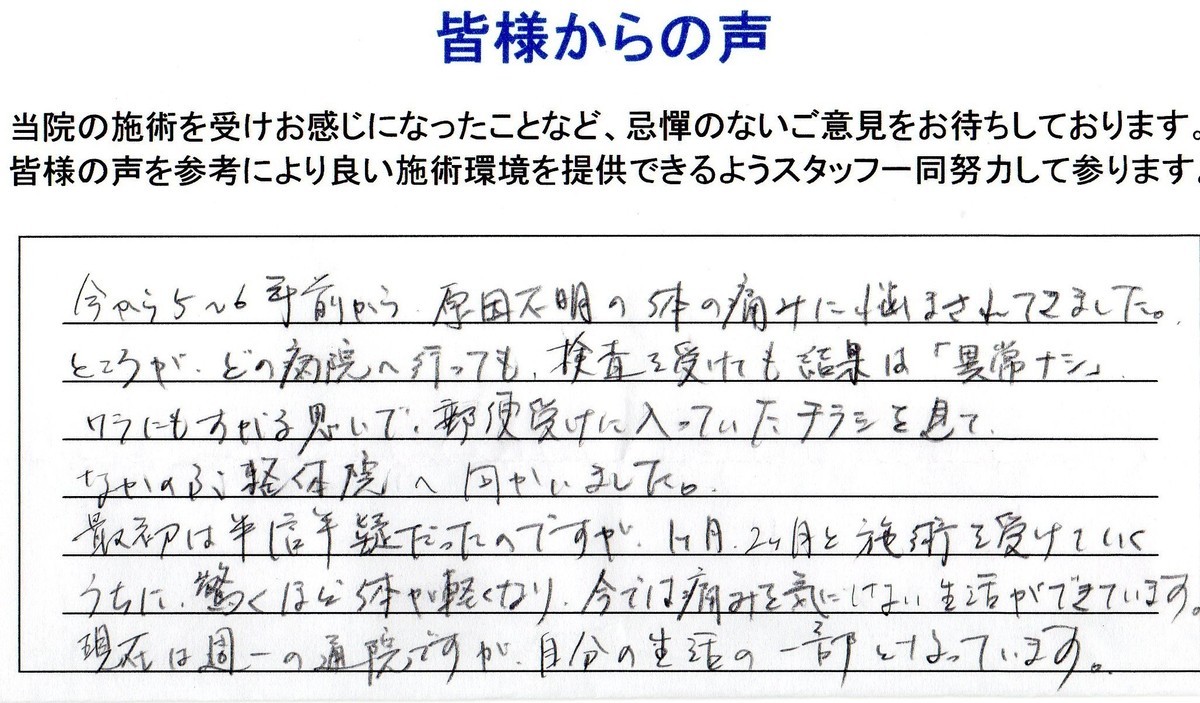 皆様からの声
当院の施術を受けお感じになったことなど、忌憚のないご意見をお待ちしております。
皆様の声を参考により良い施術環境を提供できるようスタッフ一同努力して参ります。
今から5〜6年前から、原因不明の体の痛みに悩まされてきました。
ところが、どの病院へ行っても、検査を受けても結果は「異常ナシ」、
ワラにもすがる思いで、郵便受けに入っていたチラシを見て、
なかのぶ整体院へ向かいました。
最初は半信半疑だったのですが、1ヶ月、2ヶ月と施術を受けていく
うちに、驚くほど体が軽くなり、今では痛みを気にしない生活ができています。
現在は週一の通院ですが、自分の生活の一部となっています。